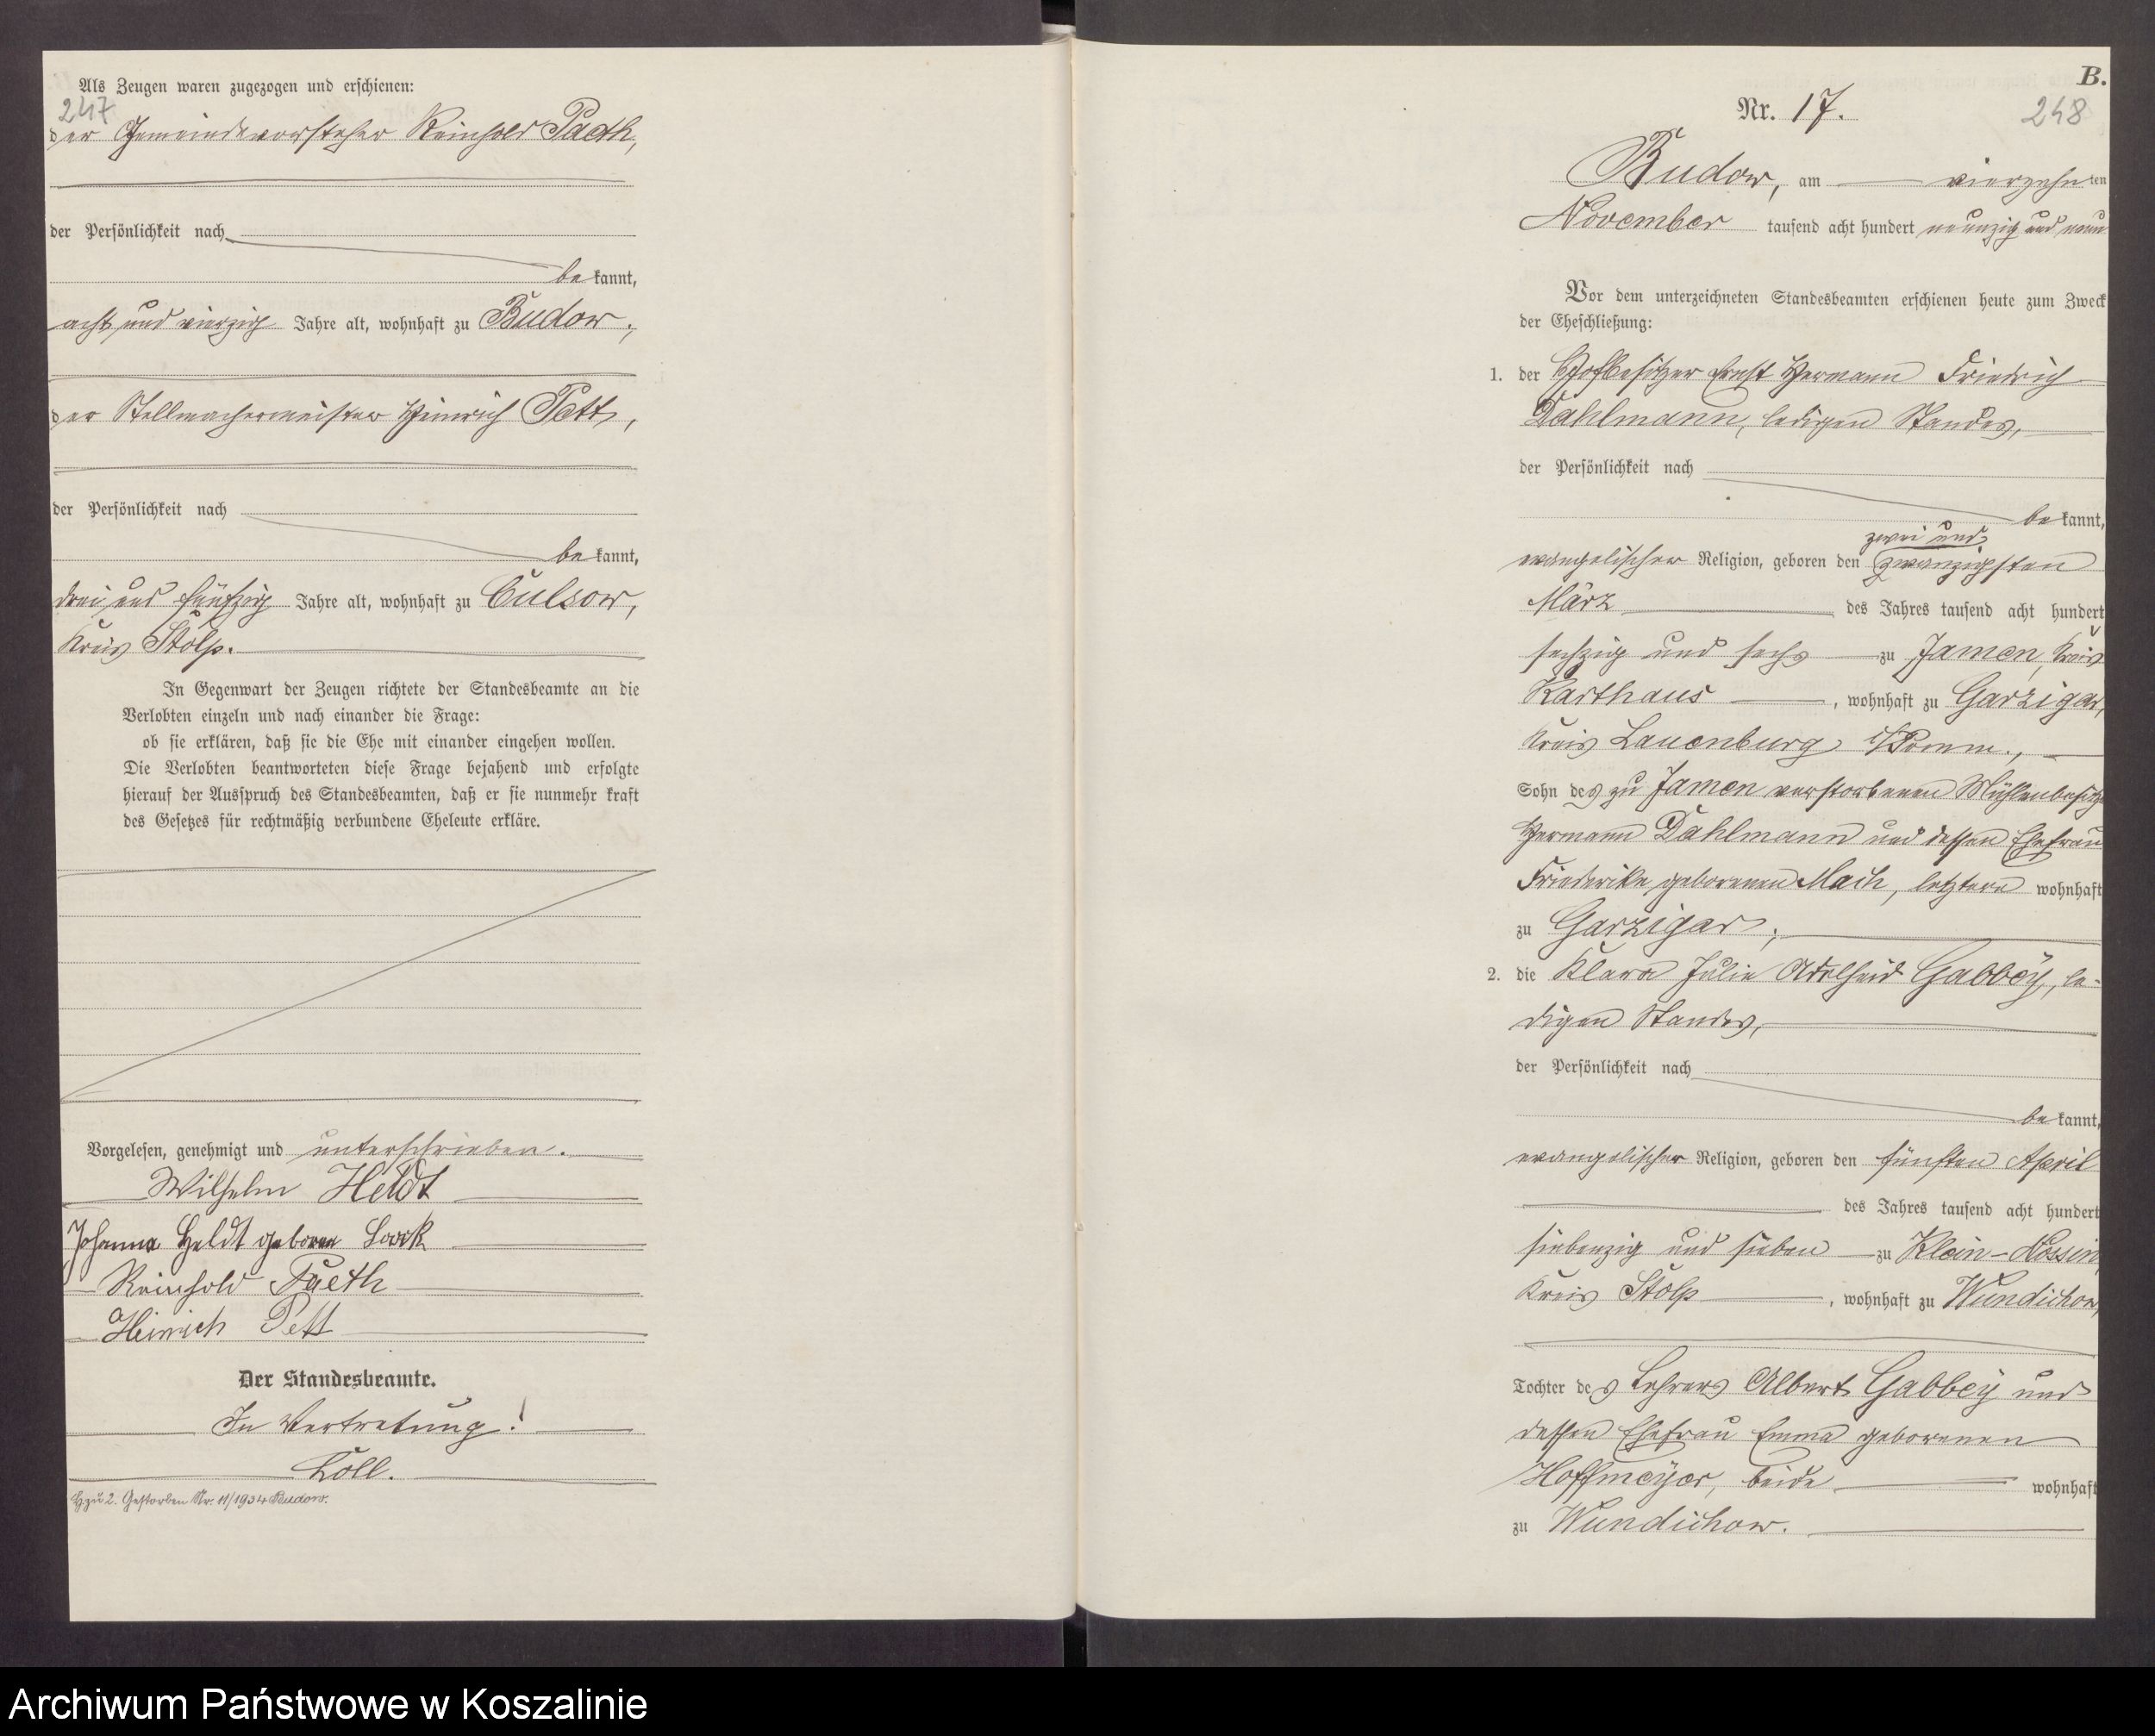 Als Zeugen waren zugezogen und erschienen:
247
der Gemeindevorsteher Reinhold Paeth,
der Persönlichkeit nach
bekannt,
acht und vierzig Jahre alt, wohnhaft zu Budow,
der Stellmachermeister Heinrich Pett,
der Persönlichkeit nach
bekannt,
drei und fünfzig Jahre alt, wohnhaft zu Culsow,
Kreis Stolp.
In Gegenwart der Zeugen richtete der Standesbeamte an die
Verlobten einzeln und nach einander die Frage:
ob sie erklären, daß sie die Ehe mit einander eingehen wollen.
Die Verlobten beantworteten diese Frage bejahend und erfolgte
hierauf der Ausspruch des Standesbeamten, daß er sie nunmehr kraft
des Gesetzes für rechtmäßig verbundene Eheleute erkläre.
Vorgelesen, genehmigt und unterschrieben.
Wilhelm Heldt
Johanna Heldt geboren
Reinhold Paeth
Heinrich Pett
Der Standesbeamte.
In Vertretung!
Löll.
H zu 2. Gestorben Nr. 11/1934 Budow.
B.
Nr. 17.
248
Budow, am vierzehnten
November tausend acht hundert neunzig und neun
Vor dem unterzeichneten Standesbeamten erschienen heute zum Zweck
der Eheschließung:
1. der Hofbesitzer Ernst Hermann Friedrich
Dahlmann, ledigen Standes,
der Persönlichkeit nach
bekannt,
zwei und
evangelischer Religion, geboren den zwanzigsten
März des Jahres tausend acht hundert
sechzig und sechs zu Jamen, Kreis
Karthaus, wohnhaft zu Garzigar,
Kreis Lauenburg i/Pomm.,
Sohn des zu Jamen verstorbenen Mühlenbesitzers
Hermann Dahlmann und dessen Ehefrau
Friederike, geborenen Mach, letztere wohnhaft
zu Garzigar;
2. die Klara Julie Adelheid Gabbey, le-
digen Standes,
der Persönlichkeit nach
bekannt,
evangelischer Religion, geboren den fünften April
des Jahres tausend acht hundert
siebenzig und sieben zu Klein-Nossin,
Kreis Stolp, wohnhaft zu Wundichow,
Tochter des Lehrers Albert Gabbey und
dessen Ehefrau Emma geborenen
Hoffmeyer, beide wohnhaft
zu Wundichow.
Archiwum Państwowe w Koszalinie